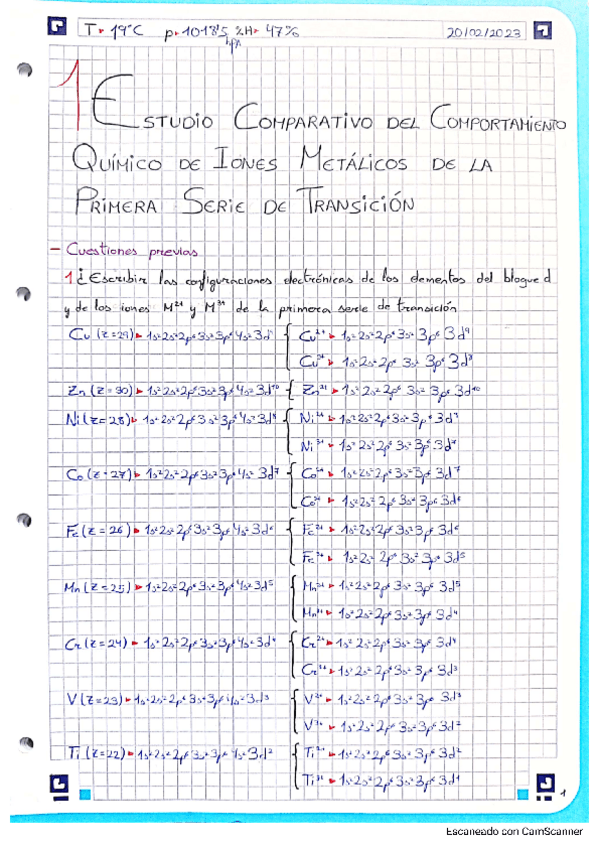 T▸ 19°C p▸ 1018'5 hPa %H▸ 47% 20/02/2023
1 ESTUDIO COMPARATIVO DEL COMPORTAMIENTO
QUÍMICO DE IONES METÁLICOS DE LA
PRIMERA SERIE DE TRANSICIÓN
- Cuestiones previas
1¿ Escribir las configuraciones electrónicas de los elementos del bloque d
y de los iones M²⁺ y M³⁺ de la primera serie de transición
Cu (z=29) ▸ 1s²2s²2p⁶3s²3p⁶4s²3d⁹ { Cu²⁺ ▸ 1s²2s²2p⁶3s²3p⁶3d⁹
Cu³⁺ ▸ 1s²2s²2p⁶3s²3p⁶3d⁸
Zn (z=30) ▸ 1s²2s²2p⁶3s²3p⁶4s²3d¹⁰ { Zn²⁺ ▸ 1s²2s²2p⁶3s²3p⁶3d¹⁰
Ni (z=28) ▸ 1s²2s²2p⁶3s²3p⁶4s²3d⁸ { Ni²⁺ ▸ 1s²2s²2p⁶3s²3p⁶3d⁸
Ni³⁺ ▸ 1s²2s²2p⁶3s²3p⁶3d⁷
Co (z=27) ▸ 1s²2s²2p⁶3s²3p⁶4s²3d⁷ { Co²⁺ ▸ 1s²2s²2p⁶3s²3p⁶3d⁷
Co³⁺ ▸ 1s²2s²2p⁶3s²3p⁶3d⁶
Fe (z=26) ▸ 1s²2s²2p⁶3s²3p⁶4s²3d⁶ { Fe²⁺ ▸ 1s²2s²2p⁶3s²3p⁶3d⁶
Fe³⁺ ▸ 1s²2s²2p⁶3s²3p⁶3d⁵
Mn (z=25) ▸ 1s²2s²2p⁶3s²3p⁶4s²3d⁵ { Mn²⁺ ▸ 1s²2s²2p⁶3s²3p⁶3d⁵
Mn³⁺ ▸ 1s²2s²2p⁶3s²3p⁶3d⁴
Cr (z=24) ▸ 1s²2s²2p⁶3s²3p⁶4s²3d⁴ { Cr²⁺ ▸ 1s²2s²2p⁶3s²3p⁶3d⁴
Cr³⁺ ▸ 1s²2s²2p⁶3s²3p⁶3d³
V (z=23) ▸ 1s²2s²2p⁶3s²3p⁶4s²3d³ { V²⁺ ▸ 1s²2s²2p⁶3s²3p⁶3d³
V³⁺ ▸ 1s²2s²2p⁶3s²3p⁶3d²
Ti (z=22) ▸ 1s²2s²2p⁶3s²3p⁶4s²3d² { Ti²⁺ ▸ 1s²2s²2p⁶3s²3p⁶3d²
Ti³⁺ ▸ 1s²2s²2p⁶3s²3p⁶3d¹
1
Escaneado con CamScanner